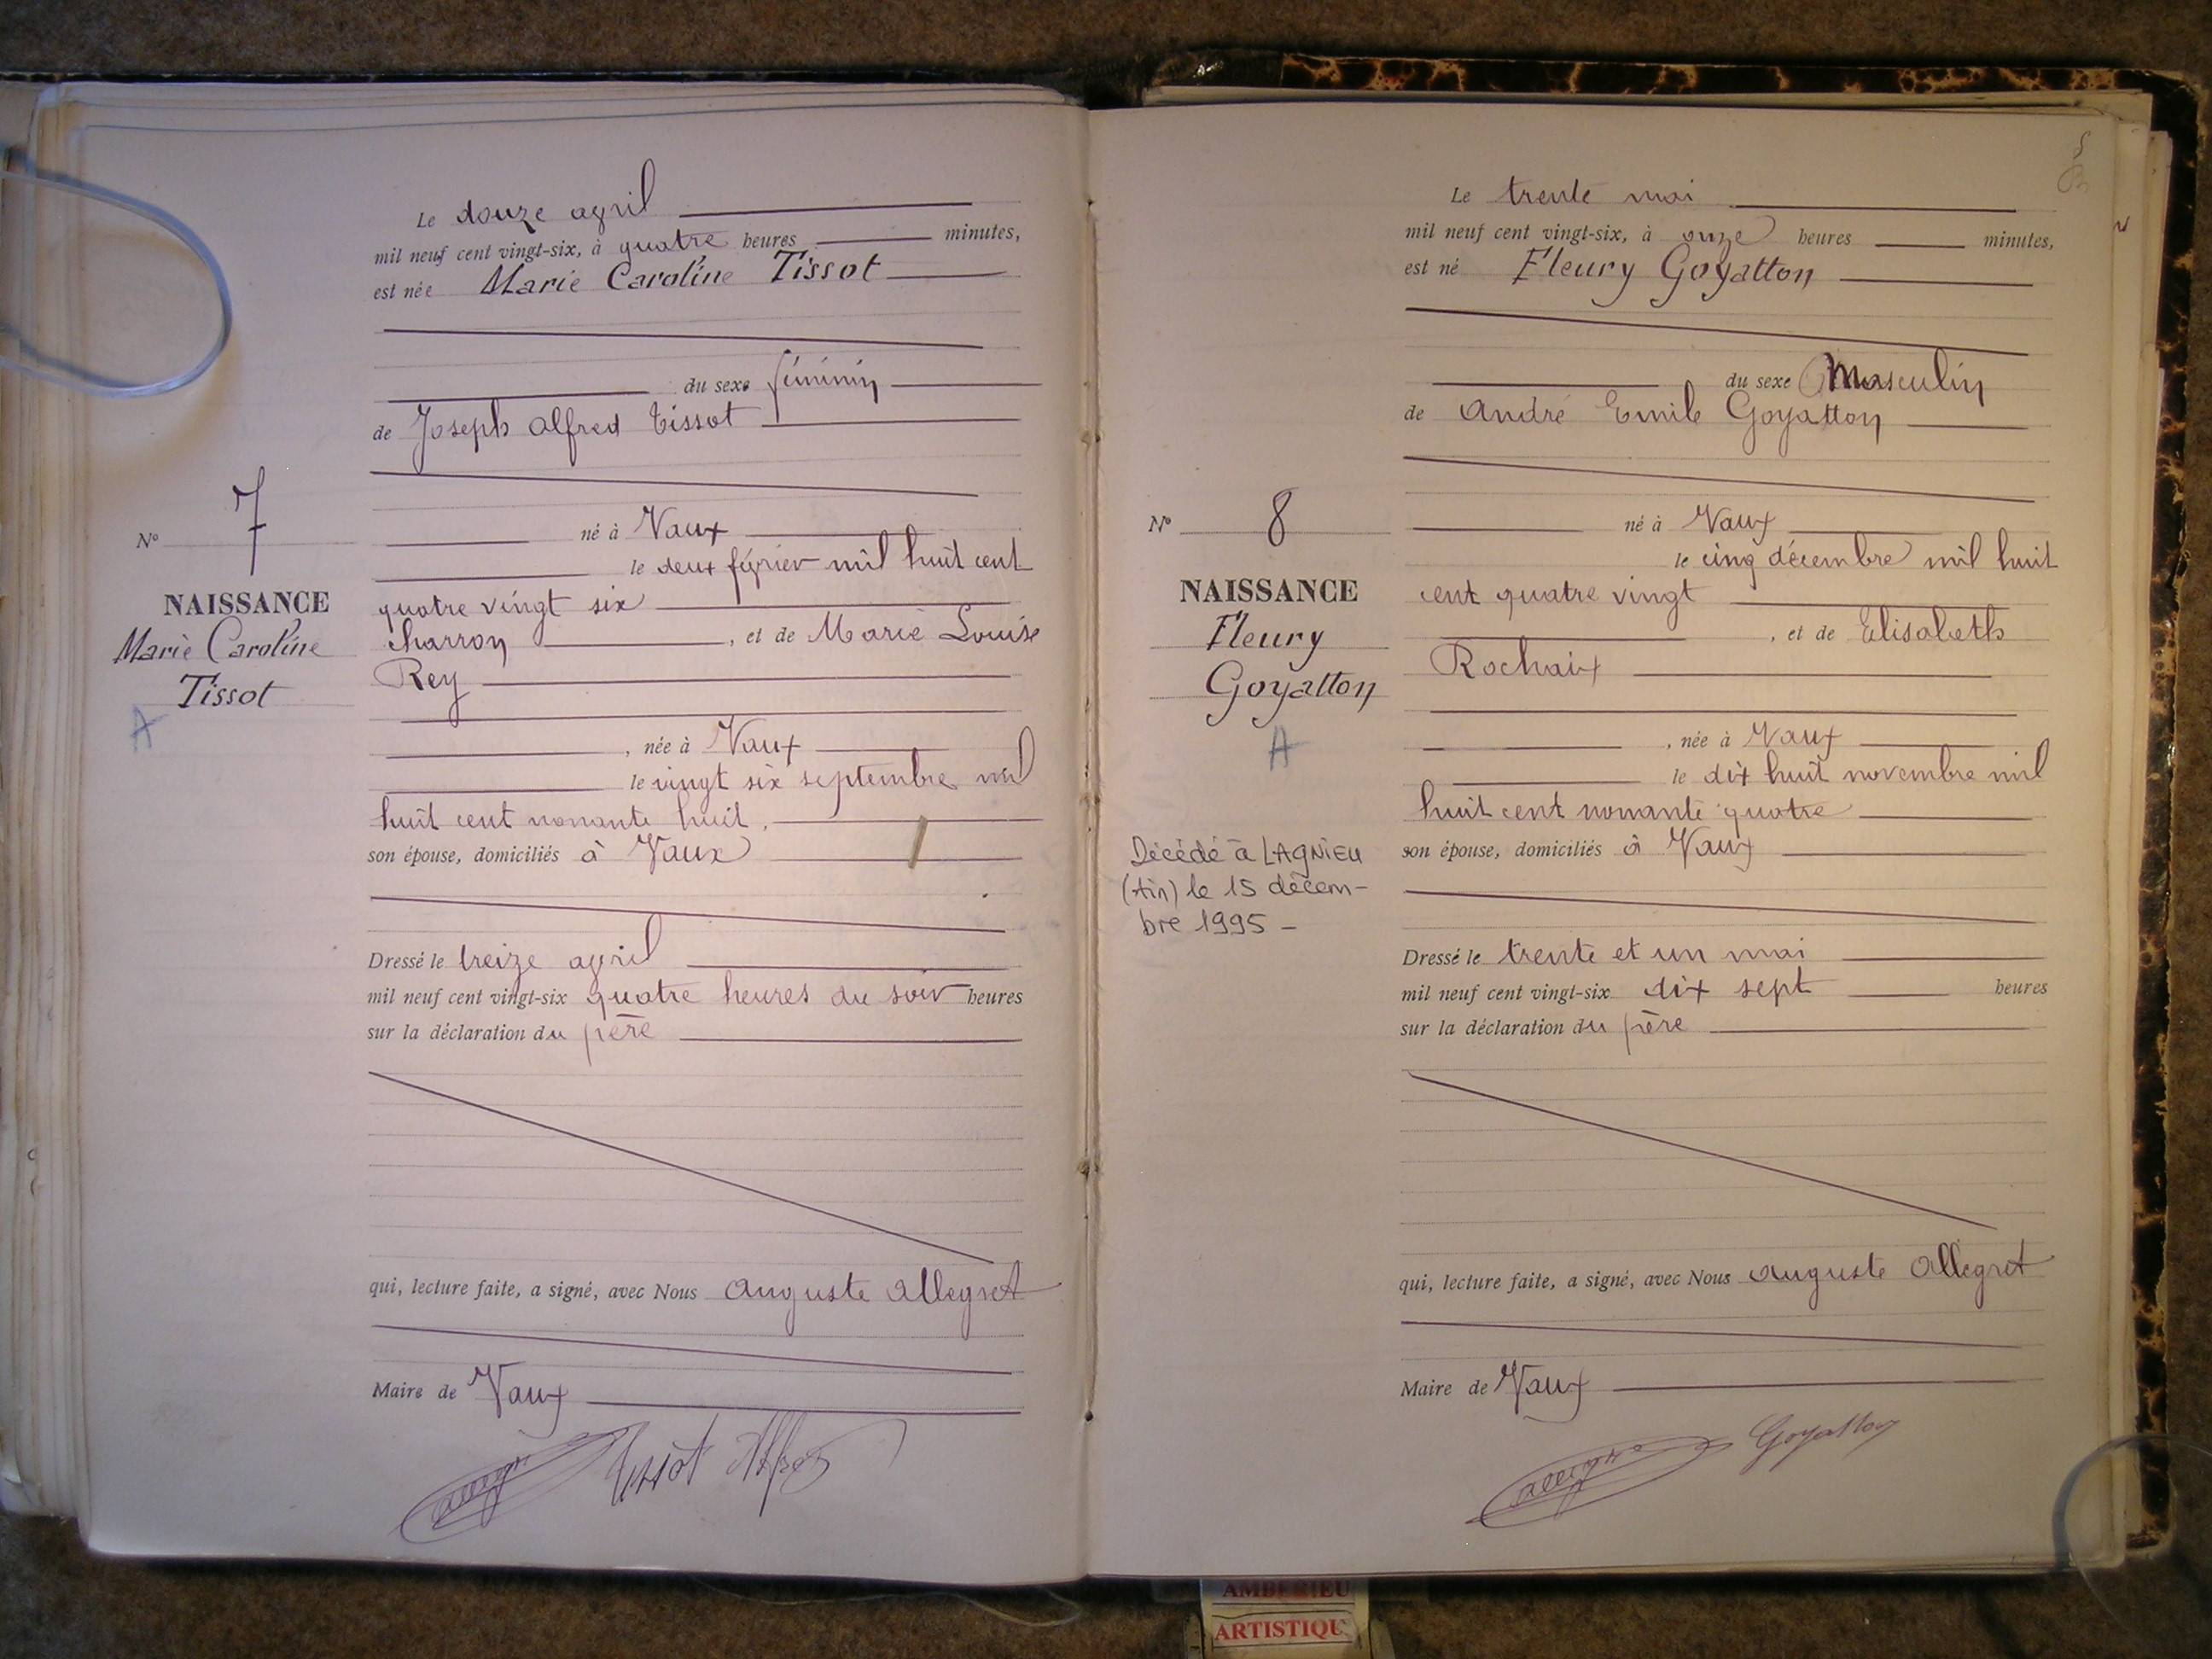 Le douze avril
mil neuf cent vingt-six, à quatre heures minutes,
est née Marie Caroline Tissot
du sexe féminin
de Joseph Alfred Tissot
né à Vaux
le deux février mil huit cent
quatre vingt six
charron, et de Marie Louise
Rey
, née à Vaux
le vingt six septembre mil
huit cent nonante huit.
son épouse, domiciliés à Vaux
Dressé le treize avril
mil neuf cent vingt-six quatre heures du soir heures
sur la déclaration du père
qui, lecture faite, a signé, avec Nous Auguste Allegret
Maire de Vaux
Tissot Alfred
N° 7
NAISSANCE
Marie Caroline
Tissot
A
Le trente mai
mil neuf cent vingt-six, à onze heures minutes,
est né Fleury Goyatton
du sexe Masculin
de André Emile Goyatton
né à Vaux
le cinq décembre mil huit
cent quatre vingt
, et de Elisabeth
Rochaix
, née à Vaux
le dix huit novembre mil
huit cent nonante quatre
son épouse, domiciliés à Vaux
Dressé le trente et un mai
mil neuf cent vingt-six dix sept heures
sur la déclaration du père
qui, lecture faite, a signé, avec Nous Auguste Allegret
Maire de Vaux
Goyatton
N° 8
NAISSANCE
Fleury
Goyatton
A
Décédé à LAGNIEU
(Ain) le 15 décem-
bre 1995 -
AMBERIEU
ARTISTIQU